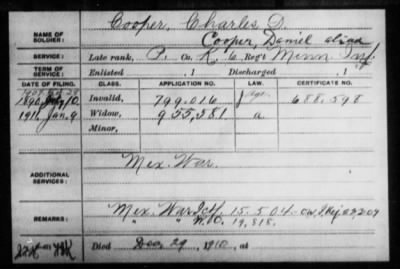 Cooper, Charles D.
NAME OF SOLDIER: Cooper, Daniel alias
SERVICE: Late rank, P. Co. K, 6, Reg't Minn. Inf.
TERM OF SERVICE: Enlisted , 1 Discharged , 1
DATE OF FILING. CLASS. APPLICATION NO. LAW. CERTIFICATE NO.
1890 July 10. Invalid, 799.016 688.598
1911 Jan. 9 Widow, 955,581 a.
Minor,
ADDITIONAL SERVICES: Mex. War.
REMARKS: Mex. War 15.504
" " 19,818.
Died Dec. 29, 1910, at